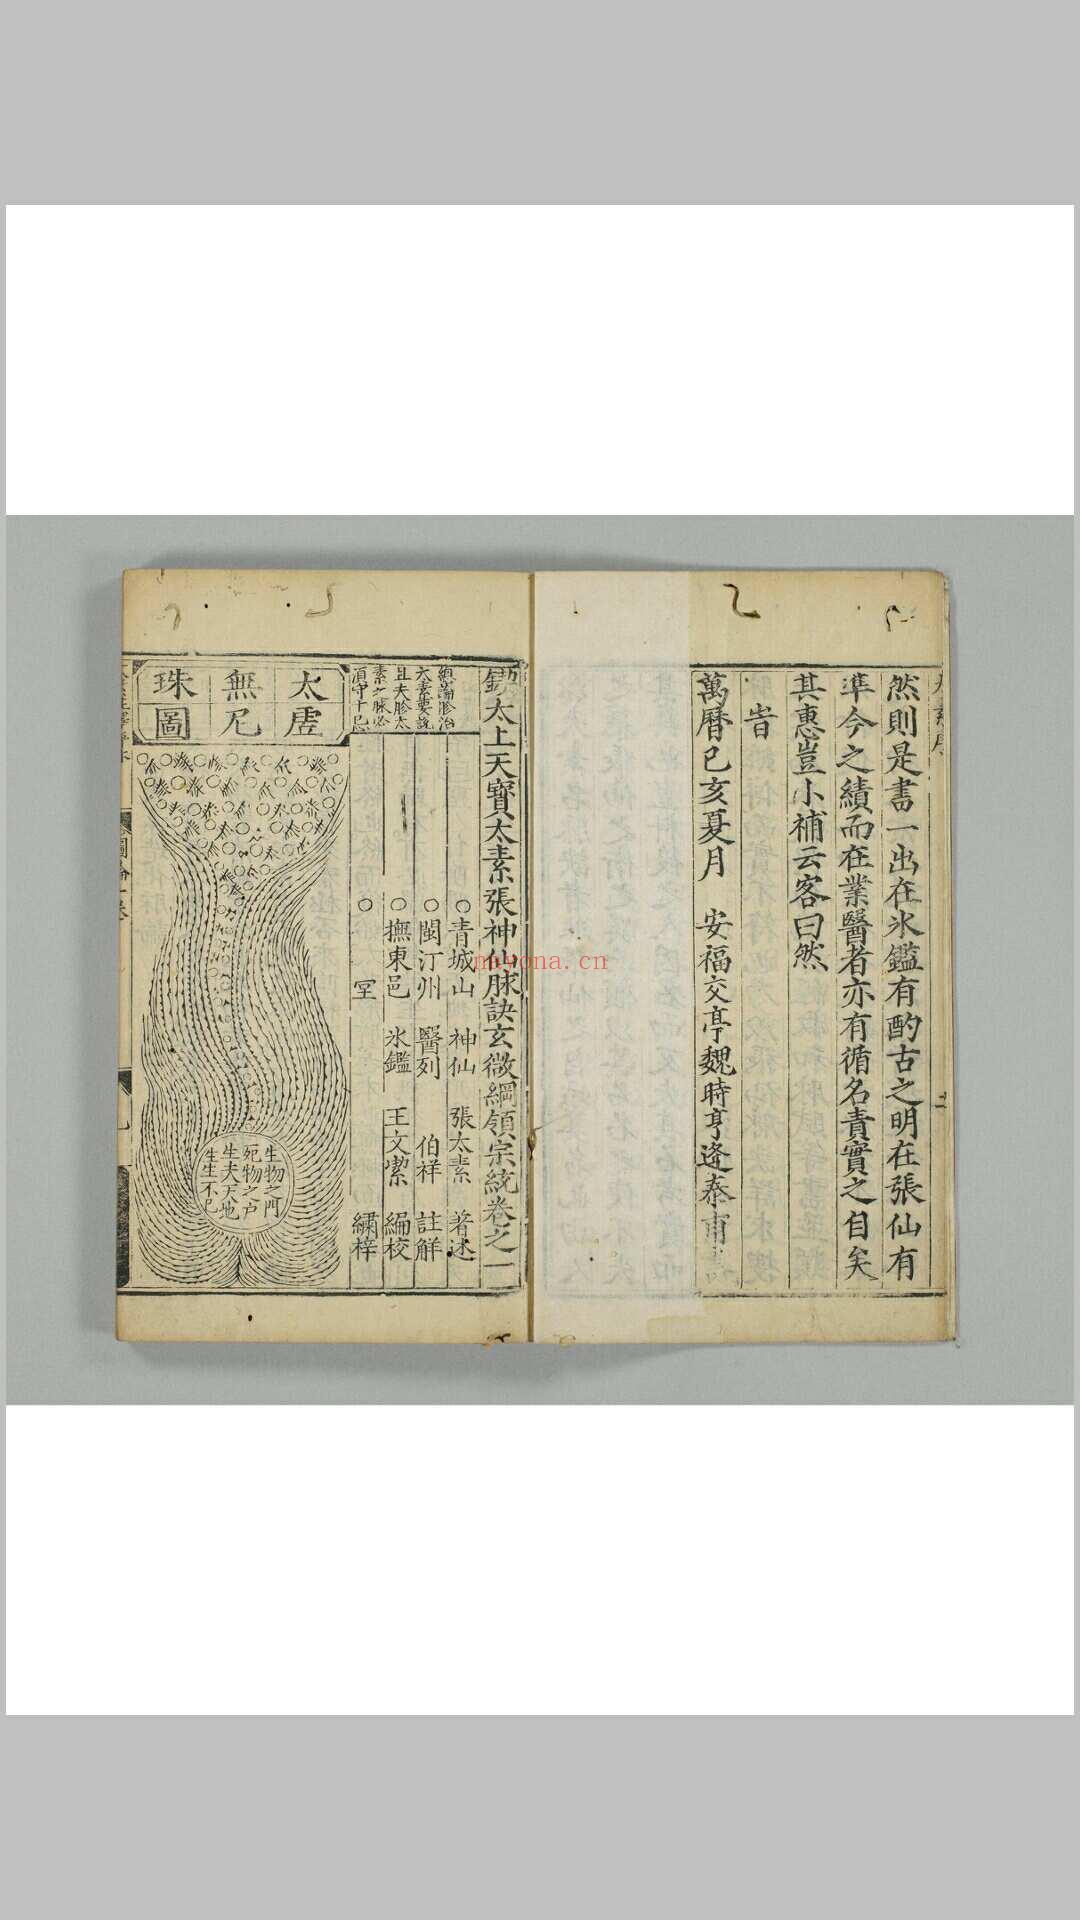 然則是書一出在氷鑑有酌古之明在張仙有
準今之績而在業醫者亦有循名責實之目矣
其惠豈小補云客曰然
旹
萬曆己亥夏月 安福交亭魏時亨逢泰甫
太上天寶太素張神仙脉訣玄微綱領宗統卷之一
○青城山 神仙 張太素 著述
○閩汀州 醫列 伯祥 註解
○撫東邑 氷鑑 王文㓗 編校
○ 繡梓
總論胗治
太素要說
且夫胗太
素之脉必
須守十忌
太虛
無尼
珠圖
生物之門
死物之户
生夫天地
生生不已
nayona.cn